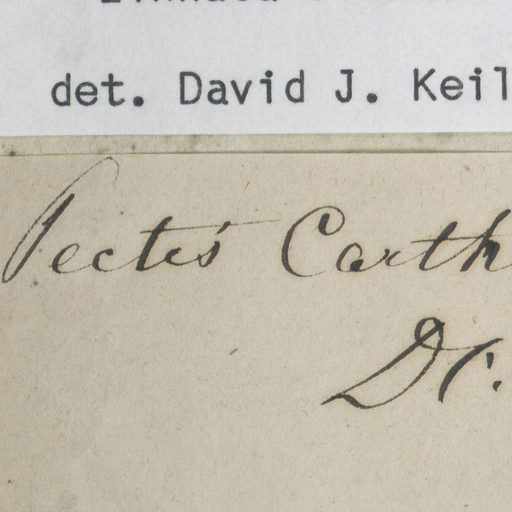 det. David J. Keil
Pectis Carth
DC.